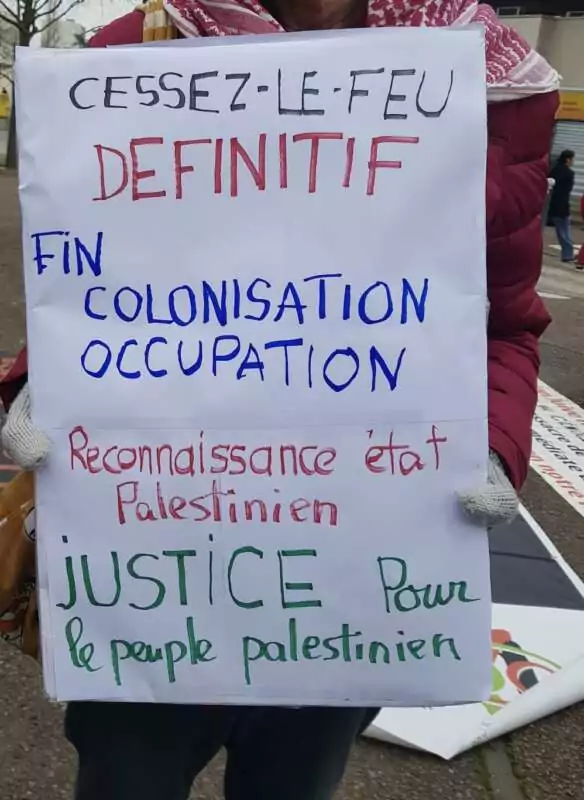 CESSEZ-LE-FEU
DEFINITIF
FiN
COLONISATION
OCCUPATION
Reconnaissance état
Palestinien
jUSTiCE Pour
le peuple palestinien